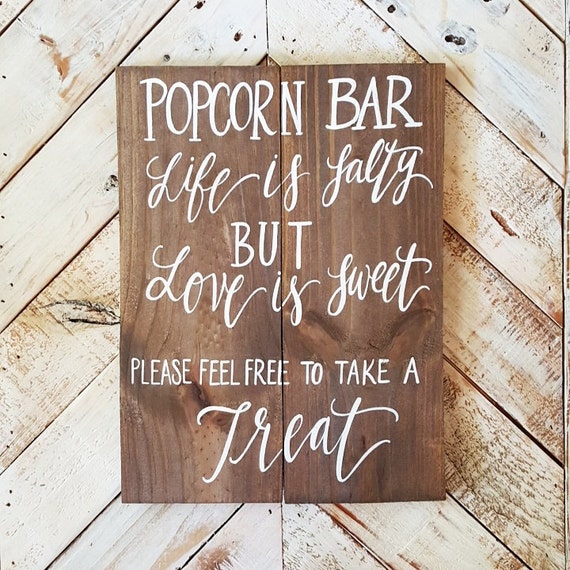 POPCORN BAR
Life is Salty
BUT
Love is Sweet
PLEASE FEEL FREE TO TAKE A
Treat